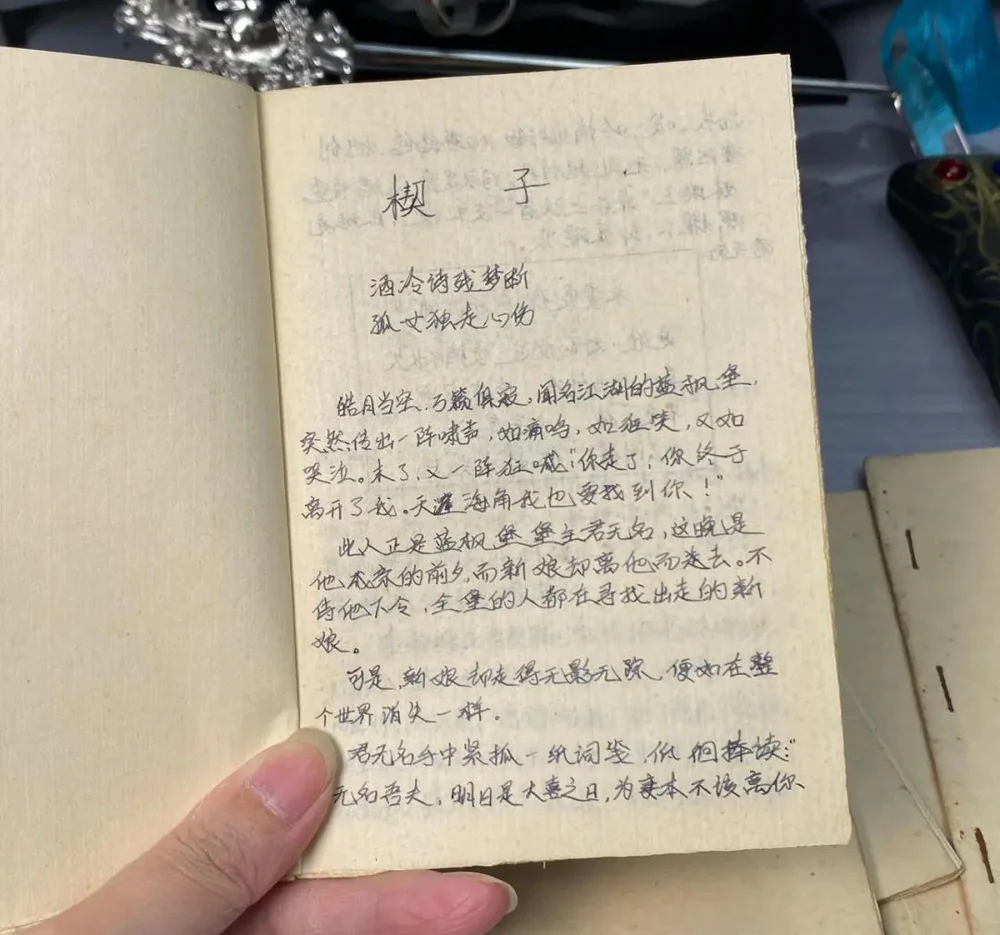 楔 子
酒冷诗残梦断
孤女独走心伤
皓月当空,万籁俱寂,闻名江湖的蓝枫堡,
突然传出一阵啸声,如痛呜,如狂笑,又如
哭泣。末了,又一阵狂喊:“你走了,你终于
离开了我。天涯海角我也要找到你!”
此人正是蓝枫堡堡主君无名,这晚是
他成亲的前夕,而新娘却离他而去。不
待他下令,全堡的人都在寻找出走的新
娘。
可是,新娘却走得无影无踪,便如在整
个世界消失一样。
君无名手中紧抓一纸词笺,低徊捧读:“
无名吾夫,明日是大喜之日,为妻本不该离你